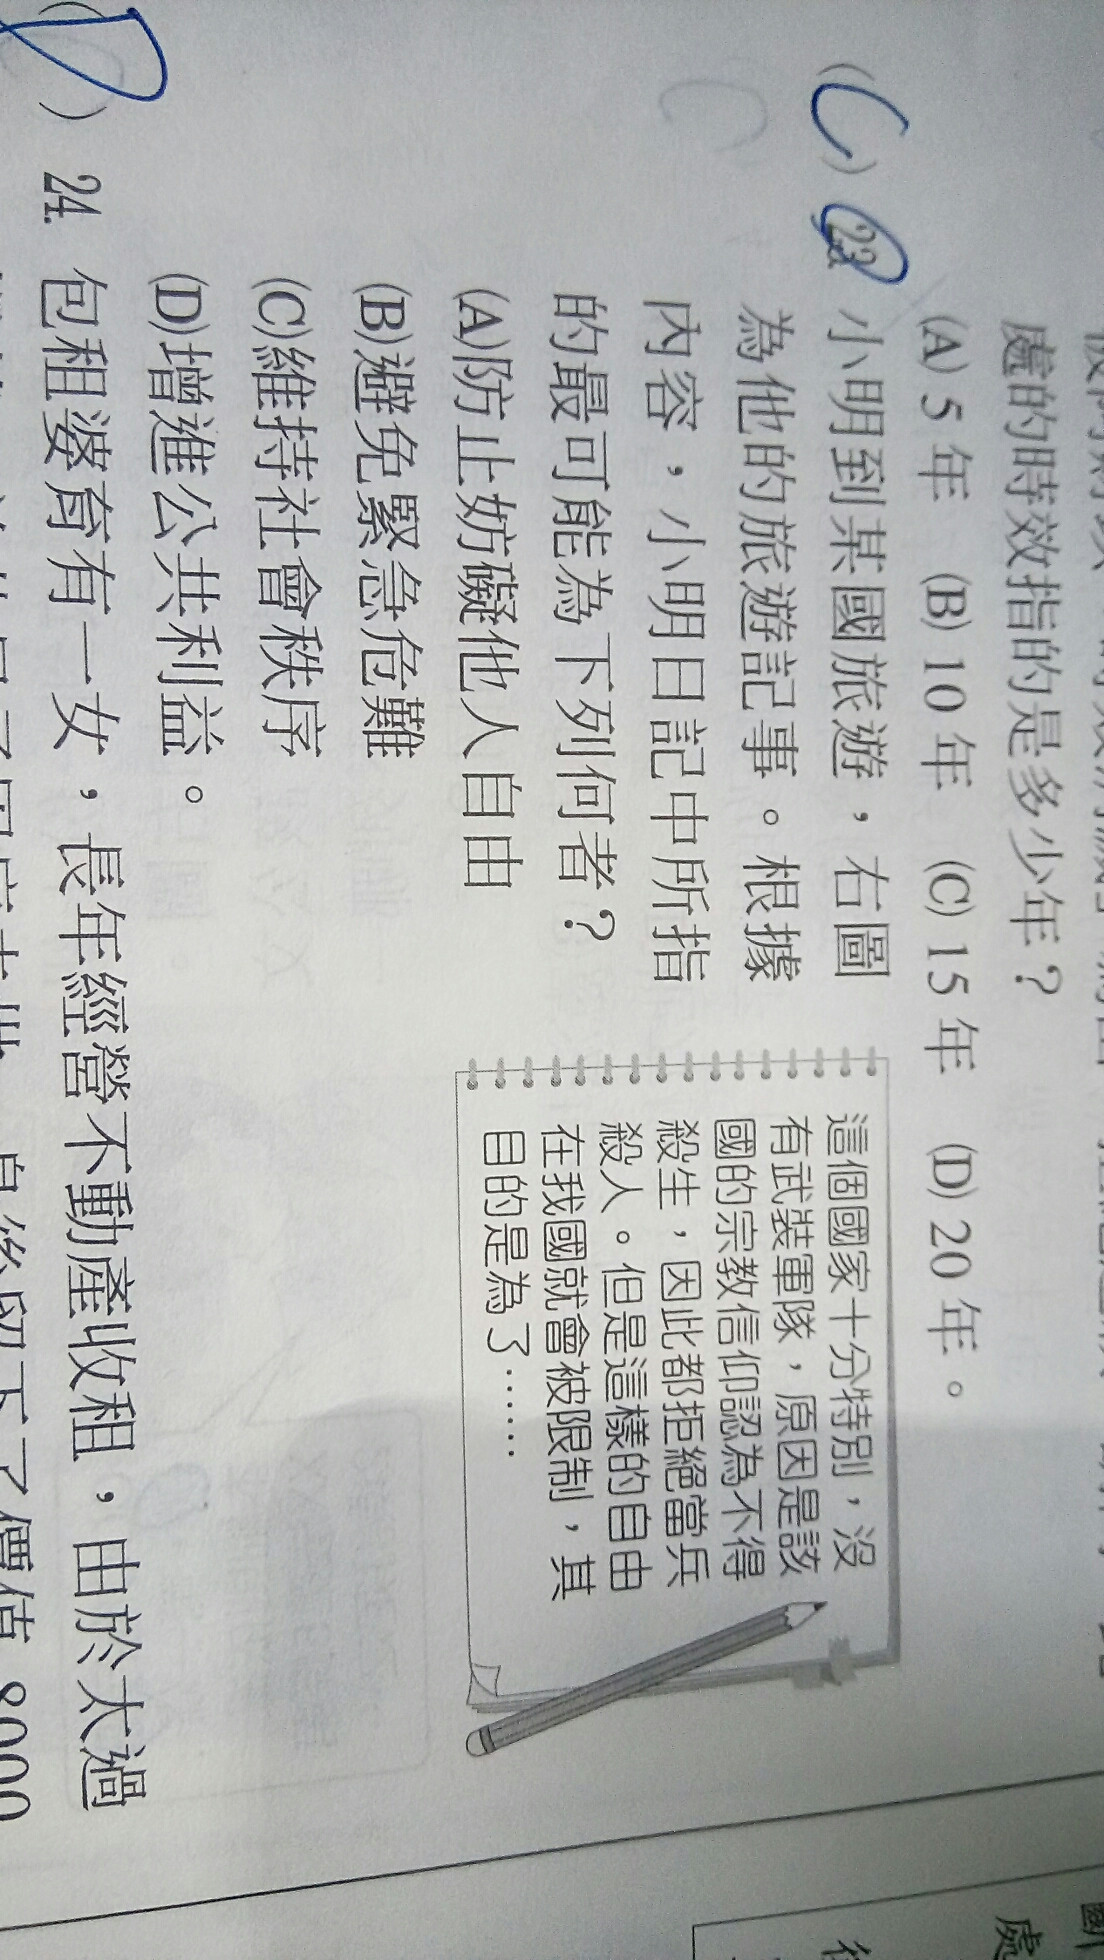 處的時效指的是多少年？
(A) 5 年 (B) 10 年 (C) 15 年 (D) 20 年。
(C) 23. 小明到某國旅遊，右圖
為他的旅遊記事。根據
內容，小明日記中所指
的最可能為下列何者？
(A)防止妨礙他人自由
(B)避免緊急危難
(C)維持社會秩序
(D)增進公共利益。
這個國家十分特別，沒
有武裝軍隊，原因是該
國的宗教信仰認為不得
殺生，因此都拒絕當兵
殺人。但是這樣的自由
在我國就會被限制，其
目的是為了……
(D) 24. 包租婆育有一女，長年經營不動產收租，由於太過
價值 8000
處